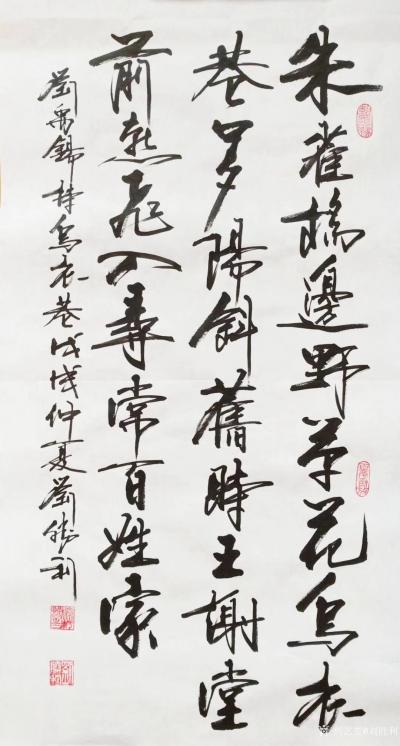 朱雀橋邊野草花烏衣
巷口夕陽斜舊時王謝堂
前燕飛入尋常百姓家
劉禹錫詩烏衣巷戊戌仲夏劉勝利